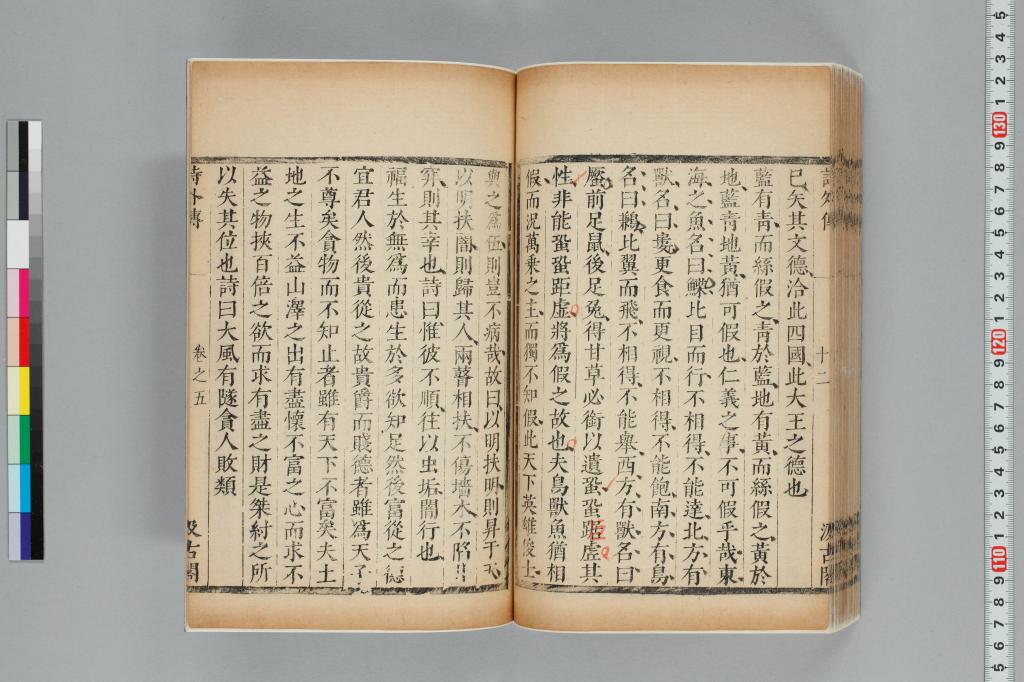 已矣其文德洽此四國此大王之德也
藍有青而絲假之青於藍地有黃而絲假之黃於
地藍青地黃猶可假也仁義之事不可假乎哉東
海之魚名曰鰈比目而行不相得不能達北方有
獸名曰婁更食而更視不相得不能飽南方有鳥
名曰鶼比翼而飛不相得不能舉西方有獸名曰
蟨前足鼠後足兔得甘草必銜以遺蛩蛩距虛其
性非能蛩蛩距虛將爲假之故也夫鳥獸魚猶相
假而況萬乘之主而獨不知假此天下英雄俊士
與之爲伍則豈不病哉故曰以明扶明則昇于天
以明扶闇則歸其人兩瞽相扶不傷墻木不陷井
穽則其幸也詩曰惟彼不順往以虫垢闇行也
福生於無爲而患生於多欲知足然後富從之德
宜君人然後貴從之故貴爵而賤德者雖爲天子
不尊矣貪物而不知止者雖有天下不富矣夫土
地之生不益山澤之出有盡懷不富之心而求不
益之物挾百倍之欲而求有盡之財是桀紂之所
以失其位也詩曰大風有隧貪人敗類
詩外傳 卷之五 汲古閣
詩外傳 十二 汲古閣
5 4 3 2 1 130 9 8 7 6 5 4 3 2 1 120 9 8 7 6 5 4 3 2 1 110 9 8 7 6 5